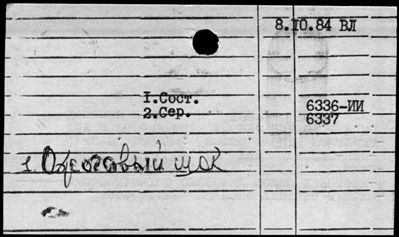 8.IO.84 ВЛ
I.Сост.
2.Сер.
6336-ИИ
6337
1. Ожоговый шок